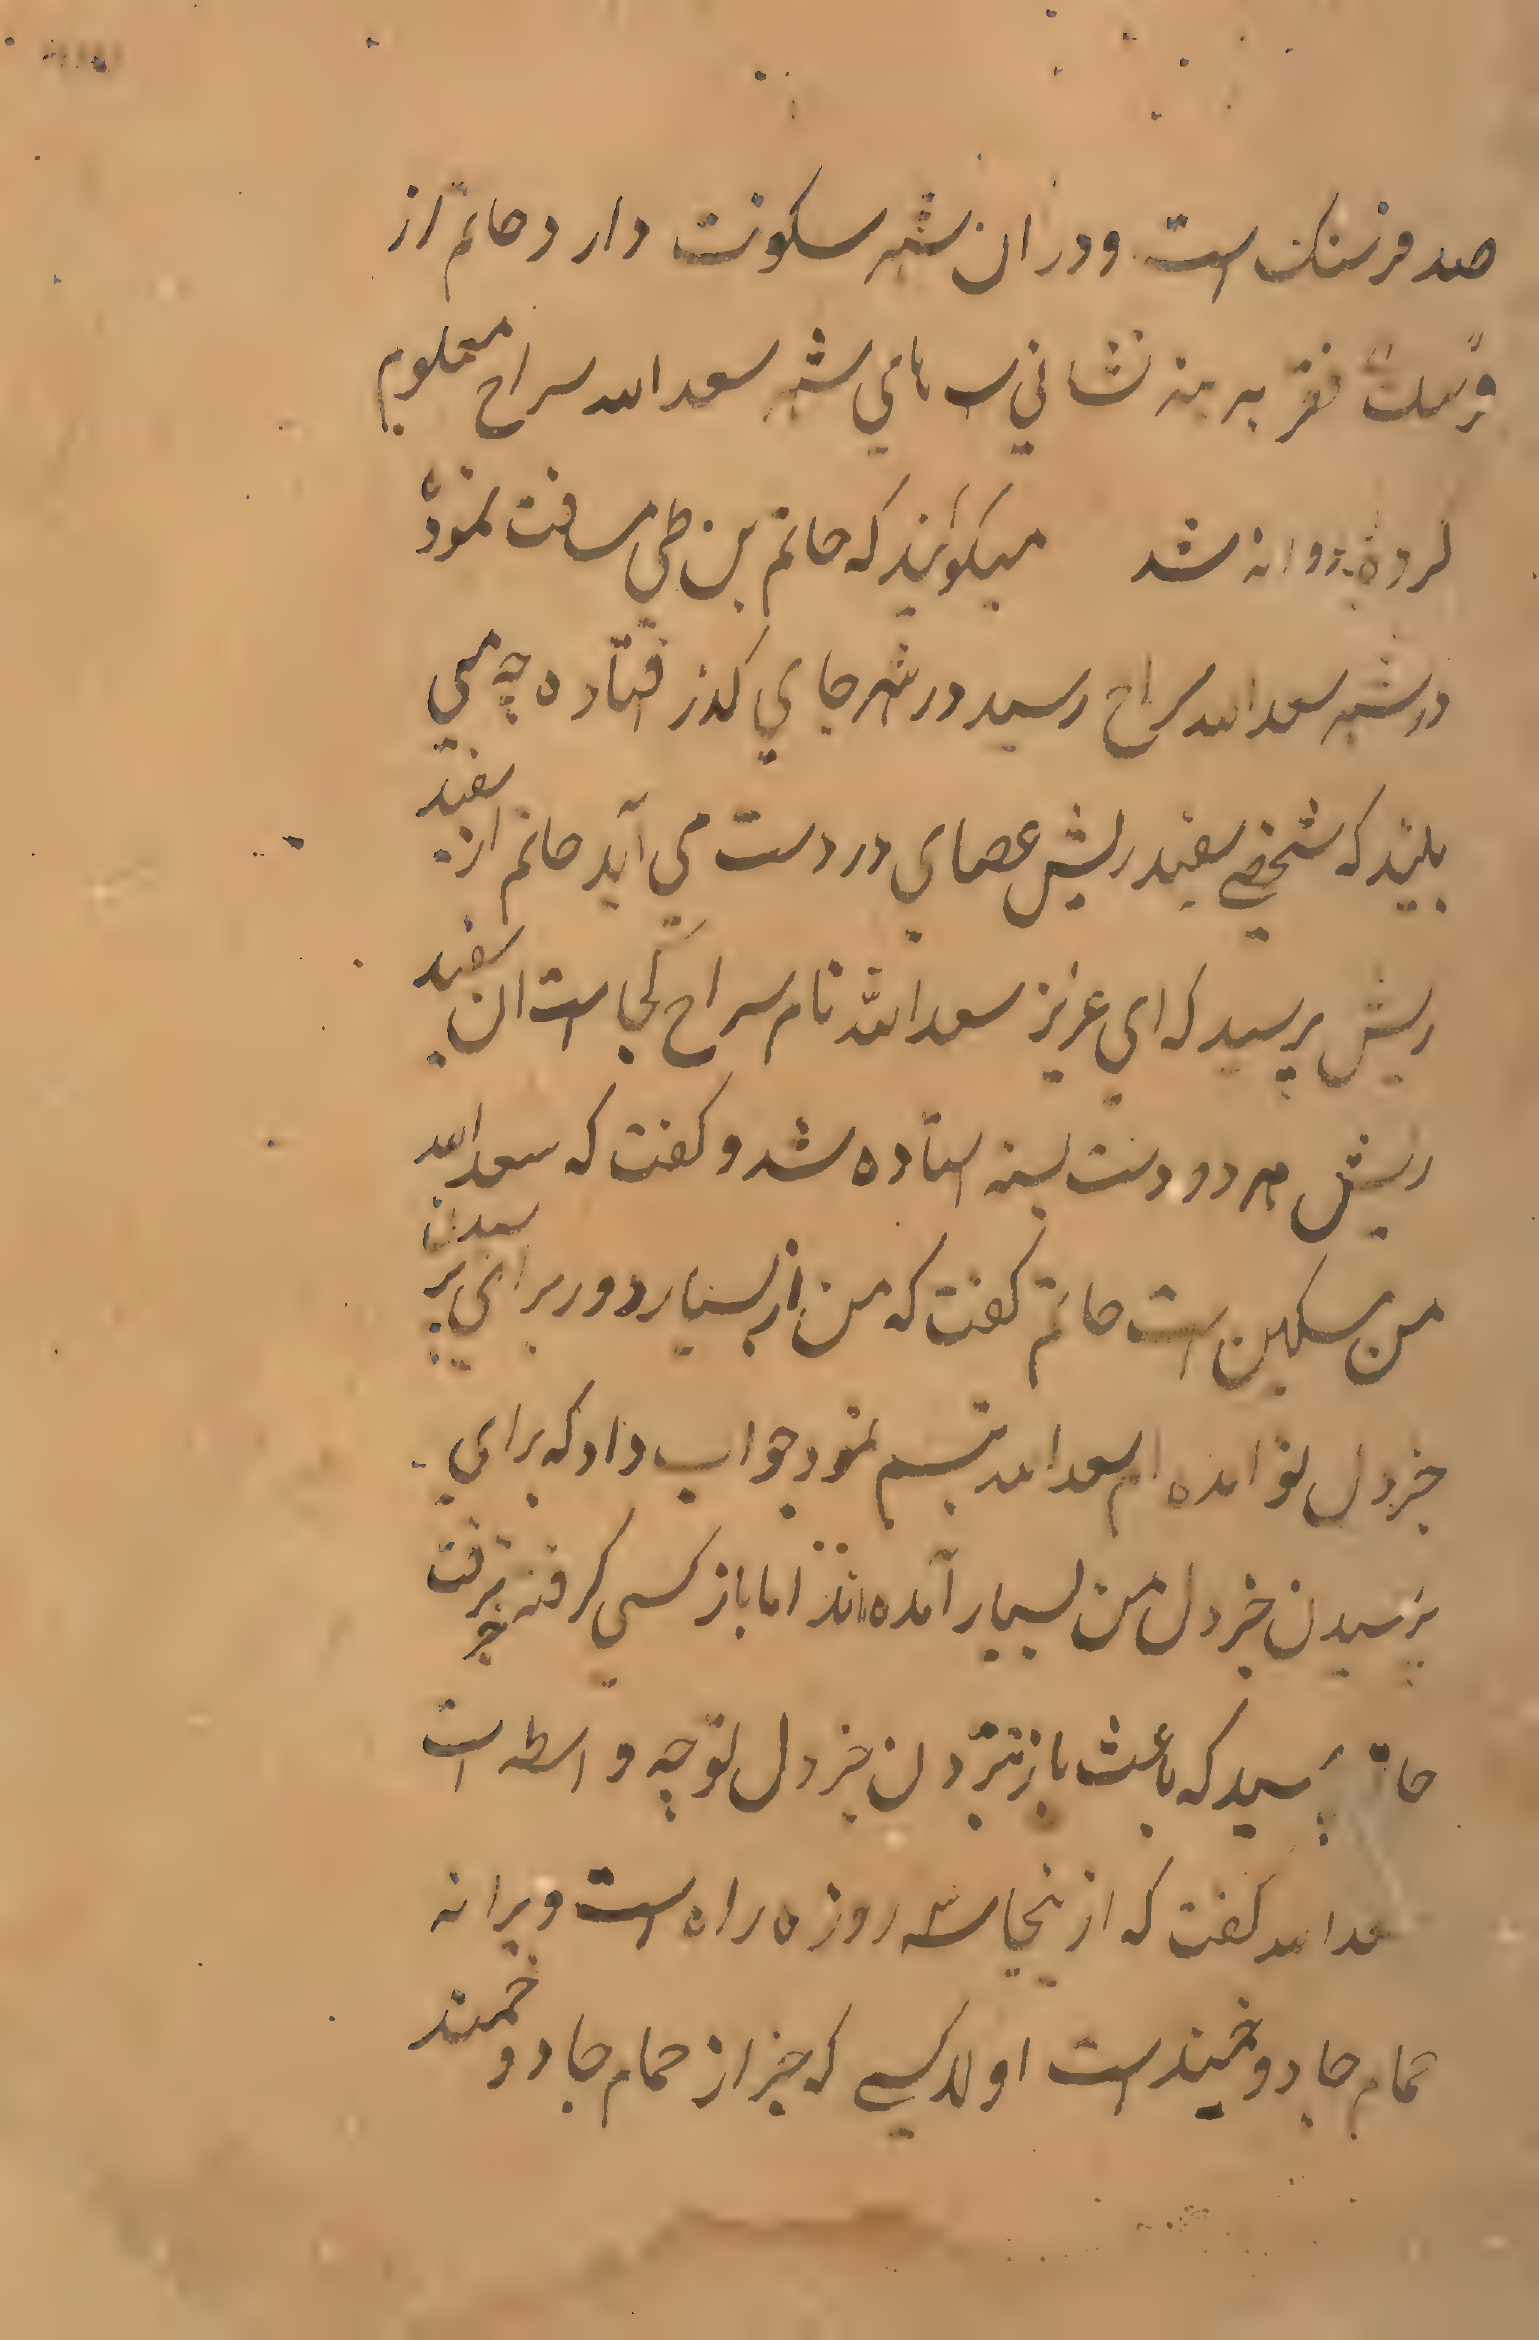 صد فرسنک است ودران شهر سکونت دارد حاتم از
فقیر برهنه نشاني های شهر سعدالله سراج معلوم
کرده روانه شد میکویند که حاتم بن طی مسافت نموده
در شهر سعدالله سراج رسید در شهر جاي کذر افتاده چه می
بیند که شخصے سفید ریش عصاي در دست می آید حاتم ازان سفید
ریش پرسید که اي عزیز سعدالله نام سراج کجاست ان سفید
ریش هردو دست بسته استاده شد و کفت که سعدالله
من مسکین است حاتم کفت که من از بسیار دور براي پرسیدن
خردل تو امده ام سعدالله تبسم نمود جواب داد که براي
پرسیدن خردل من بسیار آمده اند اما باز کسي کرفته نرفت
حاتم پرسید که باعث باز نبردن خردل تو چه واسطه است
سعدالله کفت که ازینجا سه روزه راه است ویرانه
حمام جادو خمند است اولا کسے که خبر از حمام جادو خمند